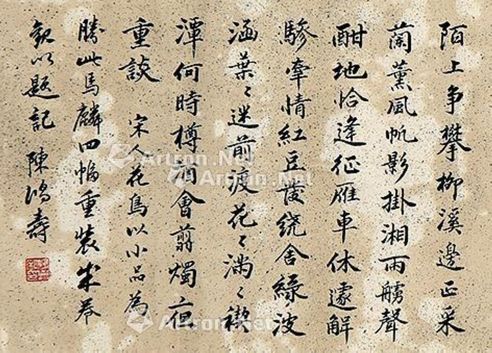 陌上争攀柳溪邊正采
蘭薰風帆影掛湘雨艣聲
酣地恰逢征雁車休遽解
驂牽情紅豆發繞舍綠波
涵葉〻迷前渡花〻滿〻禊
潭何時樽酒會翦燭夜
重談 宋人花鳥以小品為
勝此馬麟四幅重裝成卷
以題記 陳鴻壽
Artron.Net